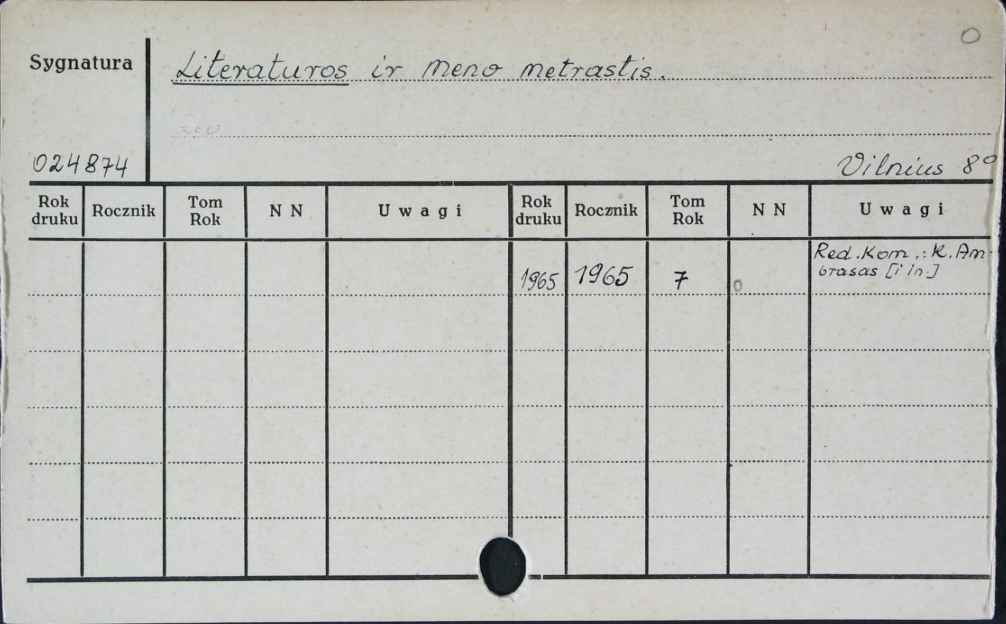 0
Sygnatura
Literaturos ir meno metrastis.
024874
Vilnius 8°
Rok druku Rocznik Tom Rok N N U w a g i Rok druku Rocznik Tom Rok N N U w a g i
1965 1965 7 0 Red. Kom.: K. Am-
brasas [i in.]